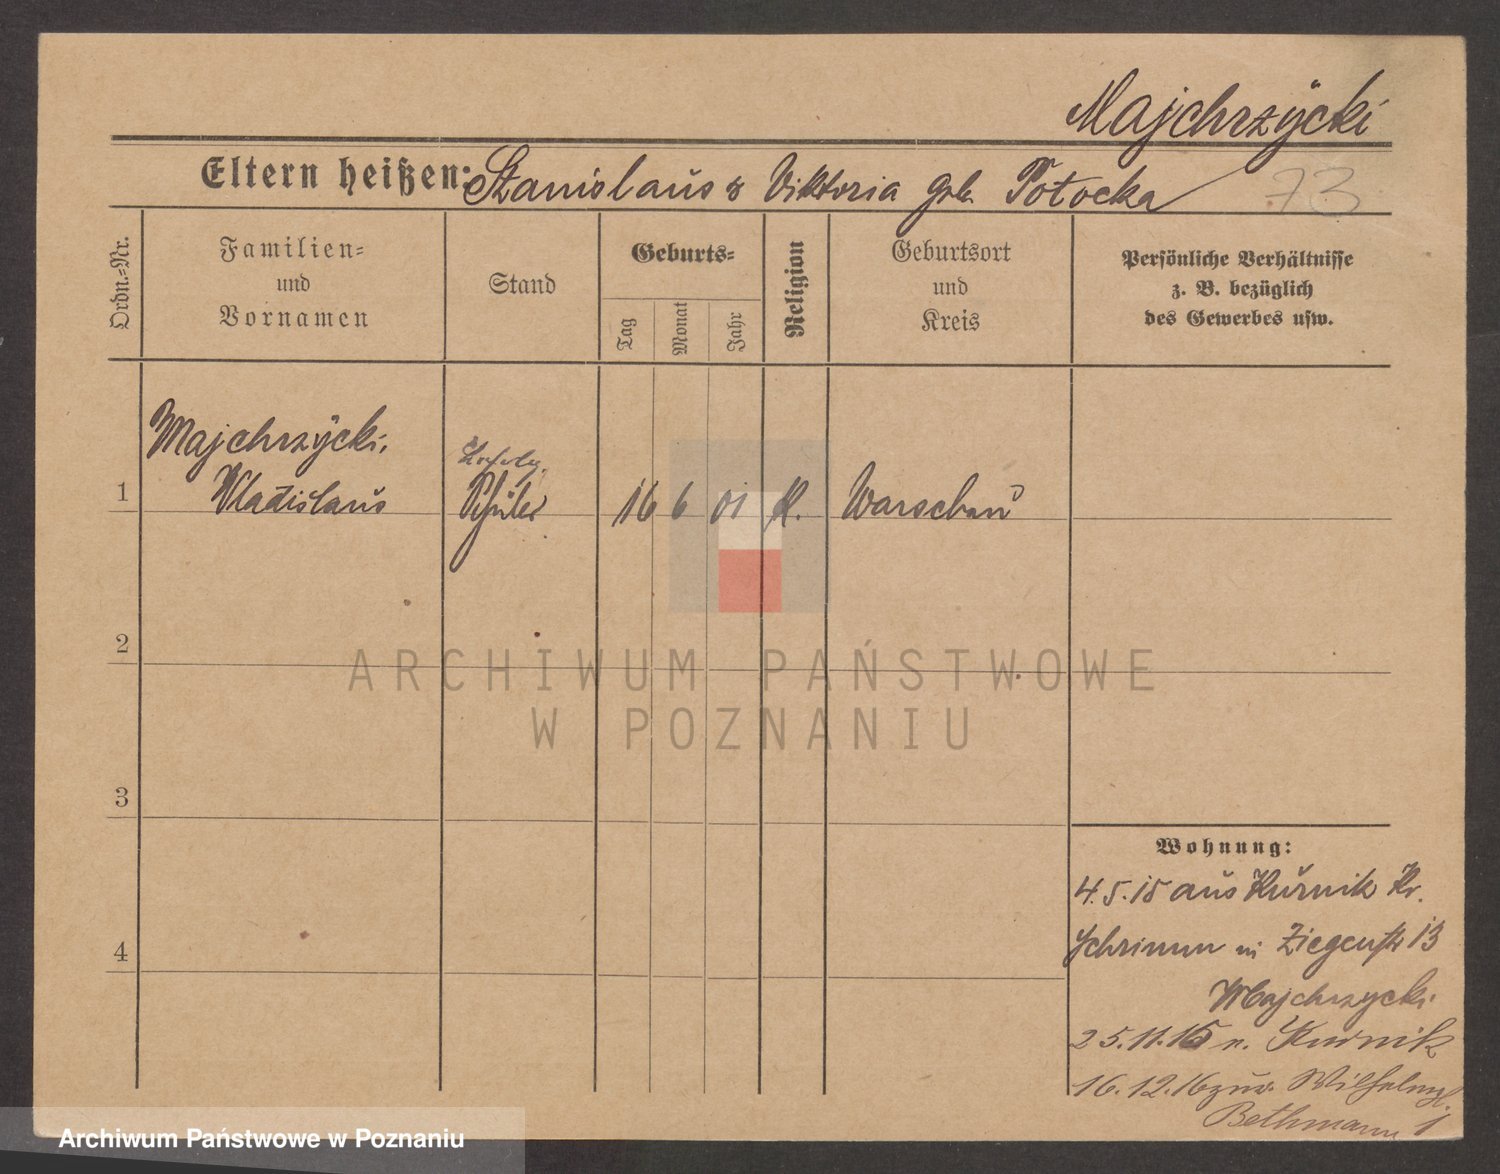 Majchrzÿcki
Eltern heißen: Stanislaus & Viktoria geb. Potocka
73
Ordn.=Nr.
Familien=
und
Vornamen
Stand
Geburts=
Tag
Monat
Jahr
Religion
Geburtsort
und
Kreis
Persönliche Verhältnisse
z. B. bezüglich
des Gewerbes usw.
Majchrzÿcki,
1 Wladislaus Schüler 16 6 01 K. Warschau
2
ARCHIWUM PAŃSTWOWE
W POZNANIU
3
Wohnung:
4.5.15 aus Kurnik Kr.
Schrimm in Ziegenstr 13
4
Majchrzycki
25.11.15 n. Kurnik
16.12.16 zur. Wilhelmpl.
Bethmann 1
Archiwum Państwowe w Poznaniu